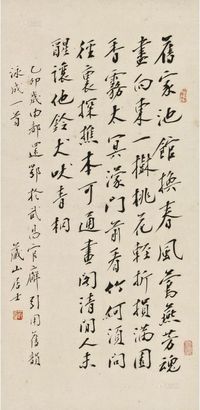 舊家池館換春風鶯燕芳魂
盡向東一樹桃花輕折損滿園
香霧太冥濛門前看竹何須問
徑裏探樵本可通畫閣清閒人未
醒讓他鈴犬吠青桐
乙卯歲由都還鄂於武昌官廨引用舊韻
詠成一首
蕺山居士